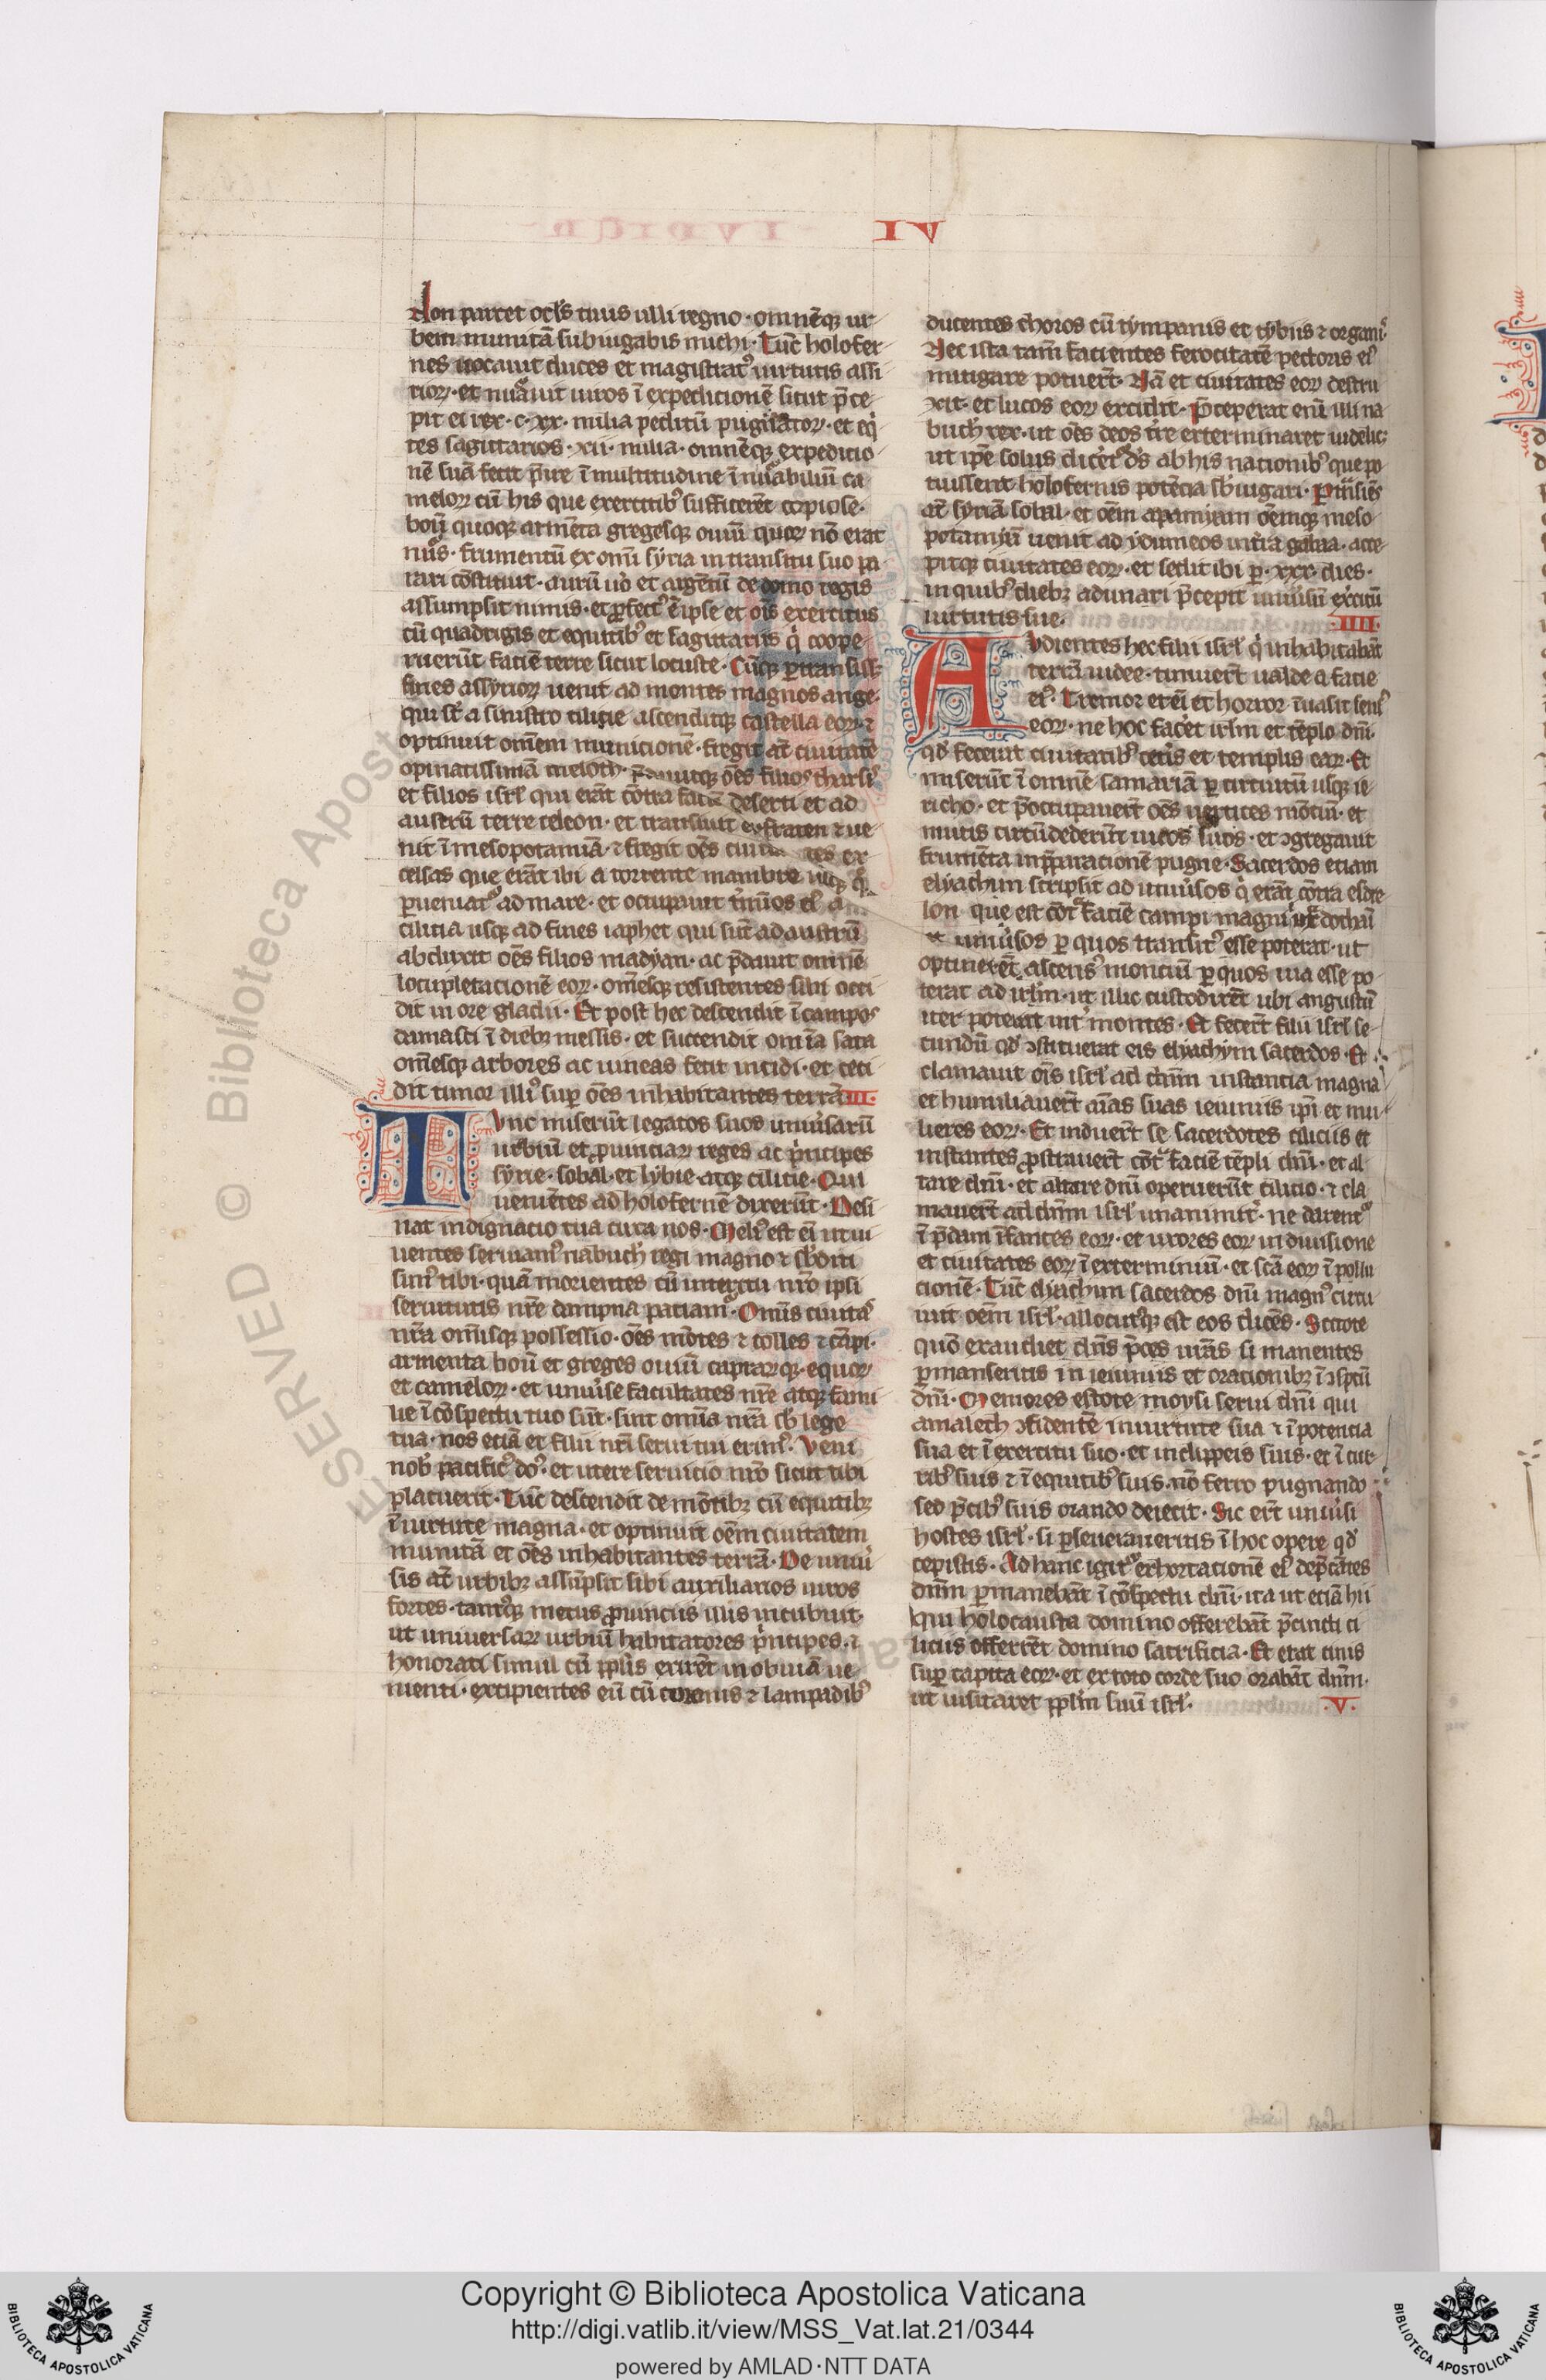 IV
Non parcet oclꝰs tuus ulli regno · omnēqꝫ ur
bem munitā subiugabis michi · Tūc holofer
nes uocauit duces et magistratꝰ uirtutis assi
rioꝝ · et nūauit uiros ī expedicionē sicut p̄ce
pit ei rex · c · xx · milia peditū pugnatoꝝ · et eq̇
tes sagittarios · xii · milia · omnēqꝫ expedicio
nē suā fecit p̄ire ī multitudine īnūabiliū ca
meloꝝ cū his que exercitibꝰ sufficerēt copiose ·
boū quoqꝫ armēta gregesqꝫ ouiū quoꝝ nō erat
nūs · frumentū ex omī syria in transitu suo pa
rari cōstituit · aurū u̇o et argētū de domo regis
assumpsit nimis · et ꝓfectꝰ ē ipse et oīs exercitus
cū quadrigis et equitibꝰ et sagittariis q̇ coope
ruerūt faciē terre sicut locuste · Cūqꝫ ꝑtransiss
fines assyrioꝝ uenit ad montes magnos ange ·
qui st̄ a sinistro cilicie ascenditqꝫ castella eoꝝ · ⁊
optinuit omēm municionē · fregit at̄ ciuitatē
opinatissimā meloth · p̄dauitqꝫ oēs filios tharsis
et filios isrl̄ qui erāt cōtra faciē deserti et ad
austrū terre celeon · et transiuit eufraten ⁊ ue
nit ī mesopotamiā · ⁊ fregit oēs ciuitates ex
celsas que erāt ibi a torrente mambre
ꝑueniatꝰ ad mare · et occupauit t̄mīos eiꝰ a
cilicia usqꝫ ad fines iaphet qui sūt ad austrū
abduxit oēs filios madyan · ac p̄dauit omnē
locupletacionē eoꝝ · omēsqꝫ resistentes sibi occi
dit in ore gladii · Et post hec descendit ī campos
damasci ī diebꝫ messis · et succendit omīa sata
omēsqꝫ arbores ac uineas fecit incidi · et ceci
dit timor illiꝰ suꝑ oēs inhabitantes terrā III ·
Tvnc miserūt legatos suos uniu̇sarū
urbiū et ꝓuinciaꝝ reges ac ṗncipes
syrie · sobal · et lybie · atqꝫ cilicie · Qui
uenietes ad holofernē dixerūt · Desi
nat indignacio tua circa nos · Meliꝰ est eī ut ui
uentes seruiamꝰ nabuch̄ regi magno ⁊ sb̄diti
simꝰ tibi · quā morientes cū interitu nr̄o ipsi
seruitutis nr̄e dampna paciamꝰ · Omīs ciuitas
nr̄a omīsqꝫ possessio · oēs mōtes ⁊ colles ⁊ cāpi ·
armenta boū et greges ouiū capraꝝqꝫ · equoꝝ
et cameloꝝ · et uniu̇se facultates nr̄e atqꝫ fami
lie ī cōspectu tuo sūt · sint omīa nr̄a sb̄ lege
tua · nos eciā et filii nr̄i serui tui erimꝰ · Veni
nob̄ pacificꝰ doꝰ · et utere seruicio nr̄o sicut tibi
placuerit · Tūc descendit de mōtibꝫ cū equitibꝫ
ī uirtute magna · et optinuit oēm ciuitatem
munitā et oēs inhabitantes terrā · De uniu̇
sis at̄ urbibꝫ assūpsit sibi auxiliarios uiros
fortes · tantꝰqꝫ metus ꝓuinciis illis incubuit
ut uniuersaꝝ urbiū habitatores ṗncipes · ⁊
honorati simul cū pp̄lis exirēt in obuiā ue
nienti · excipientes eū cū coronis ⁊ lampadibꝰ
ducentes choros cū tympanis et tybiis ⁊ organiꝰ ·
Nec ista tam̄ facientes ferocitatē pectoris eiꝰ
mitigare potuer̄t · Nā et ciuitates eoꝝ destru
xit · et lucos eoꝝ excidit · P̄ceperat eni illi na
buch̄ rex · ut oēs deos t̄re exterminaret uidelicꝫ
ut ipē solus dicet̄ꝰ ds̄ ab his nacionibꝰ que po
tuissent holofernis potēcia sb̄iugari · Ꝑt̄nsiēs
at̄ syriā sobal · et oēm apamyam oēmqꝫ meso
potamyā uenit ad ydumeos in t̄ra gabaa · acce
pitqꝫ ciuitates eoꝝ · et sedit ibi ꝑ · xxx · dies ·
in quibꝰ diebꝫ adunari p̄cepit uniu̇sū ex̄citū
uirtutis sue · IIII ·
Avdientes hec filii isrl̄ q̇ inhabitabāt
terrā iudee · timuer̄t ualde a facie
eiꝰ · Tremor eteī et horror īuasit sensꝰ
eoꝝ · ne hoc facēt irlm̄ et tēplo dnī ·
qd̄ fecerit ciuitatibꝰ cet̄is et templis eaꝝ · Et
miserūt ī omnē samariā ꝑ circuitū usqꝫ ie
richo · et p̄occupauer̄t oēs uertices mōciū · et
muris circūdederūt uicos suos · et ꝯgregauit
frumēta in p̄paracionē pugne · Sacerdos etiam
elyachim scripsit ad uniu̇sos q̇ erāt cōtra esdre
lon que est cōtꝰ faciē campi magni iuxͭ dothaī
et uniu̇sos ꝑ quos transitꝰ esse poterat · ut
optinerēt ascensꝰ monciū ꝑ quos uia esse po
terat ad irlm̄ · ut illic custodirēt ubi angustū
iter poterat int̄ montes · Et fecer̄t filii isrl̄ se
cundū qd̄ ꝯstituerat eis elyachym sacerdos · Et
clamauit oīs isrl̄ ad dnm̄ instancia magna
et humiliauer̄t aīas suas ieiuniis ipī et mu
lieres eoꝝ · Et induer̄t se sacerdotes ciliciis et
infantes ꝓstrauer̄t cōtꝰ faciē tēpli dnī · et al
tare dnī · et altare dnī operuerūt cilicio · ⁊ cla
mauer̄t ad dnm̄ isrl̄ unanimit̄ · ne darentꝰ
ī p̄dam īfantes eoꝝ · et uxores eoꝝ in diuisione
et ciuitates eoꝝ ī exterminiū · et scā eoꝝ ī pollu
cionē · Tūc elyachim sacerdos dnī magnꝰ circu
iuit oēm isrl̄ · allocutꝰqꝫ est eos dicēs · Scitote
qm̄ exaudiet dn̄s p̄ces ur̄as si manentes
ꝑmanseritis in ieiuniis et oracionibꝫ ī ꝯspcū
dnī · Memores estote moysi serui dnī qui
amalech ꝯfidentē in uirtute sua ⁊ ī potencia
sua et ī exercitu suo · et in clyppeis suis · et ī cur
ribꝰ suis ⁊ ī equitibꝰ suis · nō ferro pugnando
sed p̄cibꝰ suis orando deiecit · Sic er̄t uniu̇si
hostes isrl̄ · si ꝑseueraueritis ī hoc opere qd̄
cepistis · Ad hanc igitꝰ exhortacionē eiꝰ dep̄cātes
dnm̄ ꝑmanebāt ī cōspectu dnī · ita ut eciā hii
qui holocausta domino offerebāt p̄cincti ci
liciis offerrēt domino sacrificia · Et erat cinis
suꝑ capita eoꝝ · et ex toto corde suo orabāt dnm̄ ·
ut uisitaret pp̄lm̄ suū isrl̄ · V ·
© Biblioteca Apost
ESERVED
Copyright © Biblioteca Apostolica Vaticana
http://digi.vatlib.it/view/MSS_Vat.lat.21/0344
powered by AMLAD·NTT DATA
BIBLIOTECA APOSTOLICA VATICANA
BIBLIOTECA APOSTOLICA VATICANA